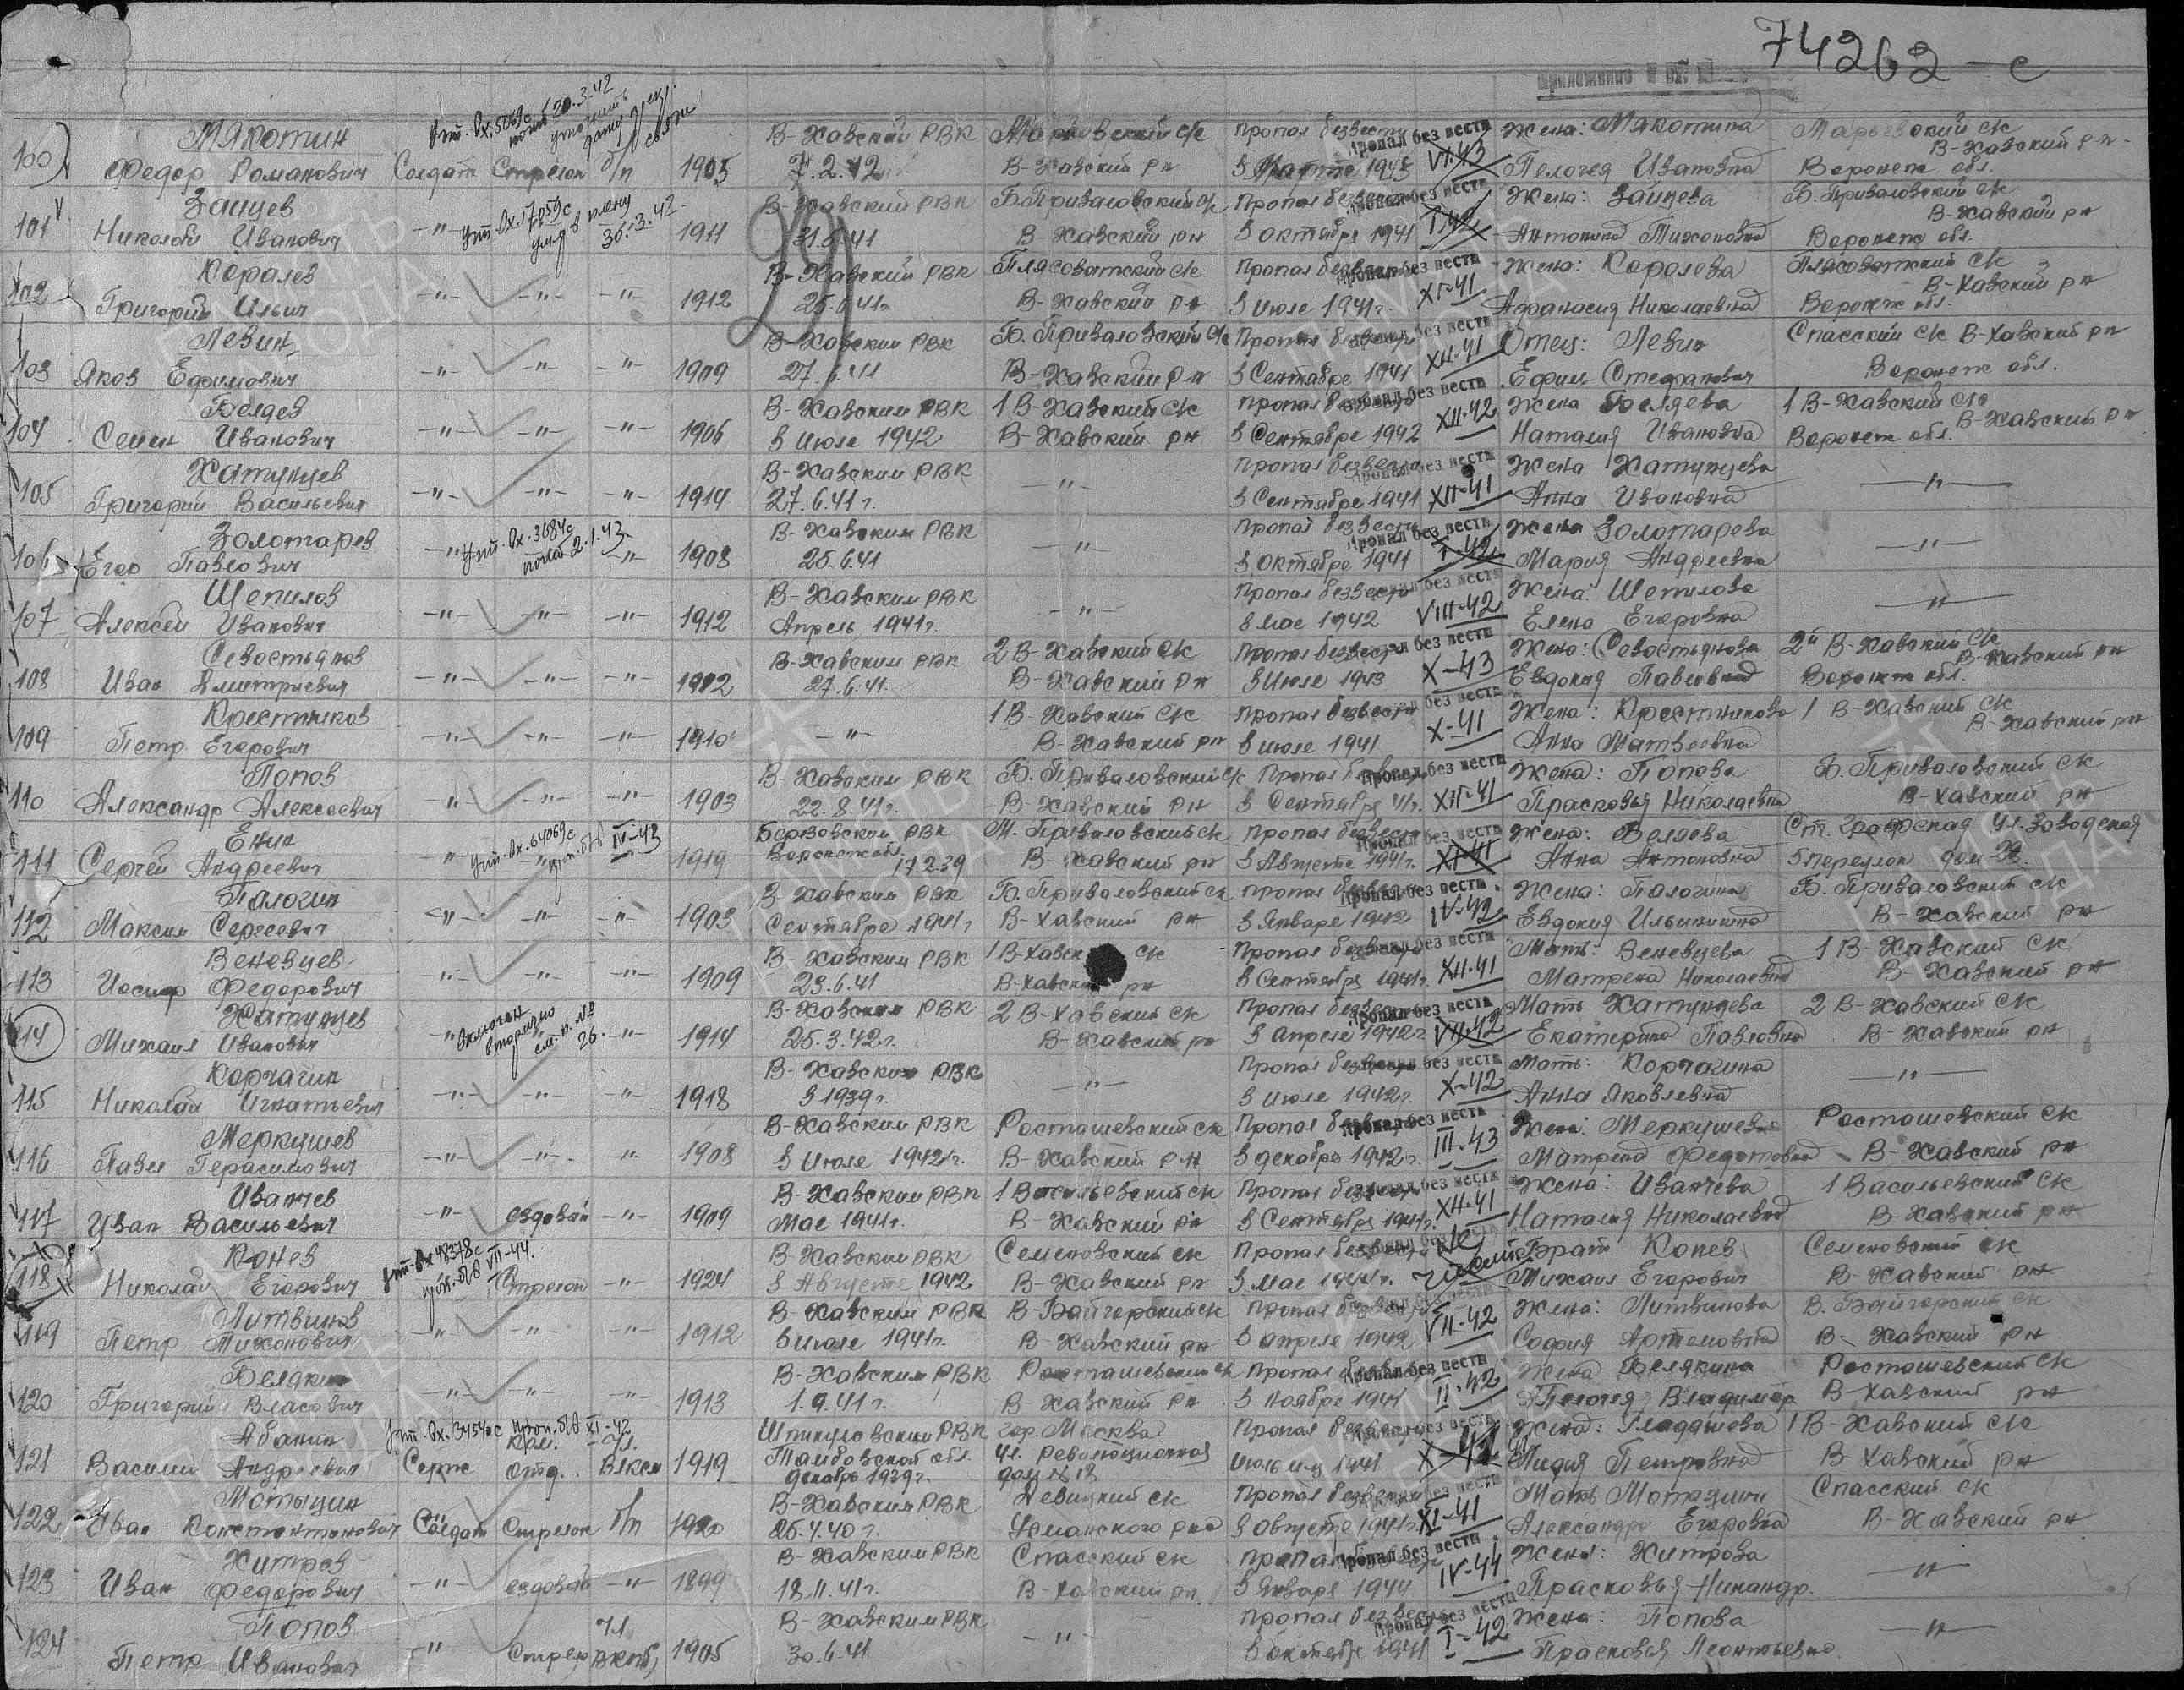 74262-с
приложение
100 Мякотин Федор Романович Солдат Стрелок б/п 1905 В-Хавский РВК 7.2.42 Марьевский с/к В-Хавский рн Пропал безвести в Марте 1943 Пропал без вести VI.43 Жена: Мякотина Пелогея Ивановна Марьевский с/к В-Хавский рн Воронеж обл.
101 Зайцев Николай Иванович -"- 1911 В-Хавский РВК 21.6.41 Б.Приваловский с/к В-Хавский рн Пропал безвести в октябре 1941 Пропал без вести I.42 Жена: Зайцева Антонина Тихоновна Б.Приваловский с/к В-Хавский рн Воронеж обл.
утт. Вх.17059с умер в плену 30.3.42.
102 Королев Григорий Ильич -"- -"- -"- 1912 В-Хавский РВК 25.6.41г. Плясоватский с/к В-Хавский рн Пропал безвести в июле 1941г. Пропал без вести XI-41 Жена: Королева Афанасия Николаевна Плясоватский с/к В-Хавский рн Воронеж обл.
29
103 Левин Яков Ефимович -"- -"- -"- 1909 В-Хавским РВК 27.6.41 Б.Приваловский с/к В-Хавский рн Пропал безвести в Сентябре 1941 без вести XII-41 Отец: Левин Ефим Стефанович Спасский с/к В-Хавский рн Воронеж обл.
104 Беляев Семен Иванович -"- -"- -"- 1906 В-Хавским РВК в Июле 1942 1 В-Хавский с/к В-Хавский рн Пропал безвести в Сентябре 1942 Пропал без вести XII-42 Жена Беляева Наталия Ивановна 1 В-Хавский с/с В-Хавский рн Воронеж обл.
105 Хатунцев Григорий Васильевич -"- -"- -"- 1914 В-Хавским РВК 27.6.41г. -"- Пропал безвести в Сентябре 1941 без вести XII-41 Жена Хатунцева Анна Ивановна -"-
106 Золотарев Егор Павлович -"- утт. Вх.3684с погиб 2.1.43 -"- 1908 В-Хавским РВК 25.6.41 -"- Пропал безвести в октябре 1941 Пропал без вести I-42 Жена Золотарева Мария Андреевна -"-
107 Шепилов Алексей Иванович -"- -"- -"- 1912 В-Хавским РВК Апрель 1941г. -"- Пропал безвести в мае 1942 без вести VIII-42 Жена: Шепилова Елена Егоровна -"-
108 Севостьянов Иван Дмитриевич -"- -"- -"- 1902 В-Хавским РВК 27.6.41. 2 В-Хавский с/к В-Хавский рн Пропал безвести в Июле 1943 без вести X-43 Жена: Севостьянова Евдокия Павловна 2й В-Хавский с/к В-Хавский рн Воронеж обл.
109 Крестников Петр Егорович -"- -"- -"- 1910 -"- 1 В-Хавский с/к В-Хавский рн Пропал безвести в июле 1941 без вести X-41 Жена: Крестникова Анна Матвеевна 1 В-Хавский с/к В-Хавский рн
110 Попов Александр Алексеевич -"- -"- -"- 1903 В-Хавским РВК 22.8.41г. Б.Приваловский с/к В-Хавский рн Пропал безвести в Сентябре 41г. Пропал без вести XII-41 Жена: Попова Прасковья Николаевна Б.Приваловский с/к В-Хавский рн
111 Енин Сергей Андреевич -"- утт. Вх.64069с IV-43 1919 Березовским РВК Воронежоб. 17.2.39 М.Приваловский с/к В-Хавский рн Пропал безвести в Августе 1941г. без вести XI-41 Жена: Беляева Анна Антоновна Ст. Графская ул. Заводская 5 переулок дом
112 Палогин Максим Сергеевич -"- -"- -"- 1903 В-Хавским РВК Сентябре 1941г Б.Приваловский с/к В-Хавский рн Пропал безвести в Январе 1942 Пропал без вести IV-42 Жена: Палогина Евдокия Ильинишна Б.Приваловский с/к В-Хавский рн
113 Веневцев Иосиф Федорович -"- -"- -"- 1909 В-Хавским РВК 23.6.41 1 В-Хавск с/к В-Хавски рн Пропал безвести в Сентябре 1941г без вести XII-41 Мать: Веневцева Матрена Николаевна 1 В-Хавский с/к В-Хавский рн
114 Хатунцев Михаил Иванович -"- Включен вторично см. п. № 26. -"- 1914 В-Хавским РВК 25.3.42г. 2 В-Хавский с/к В-Хавский рн Пропал безвести в апреле 1942г Пропал без вести VII-42 Мать Хатунцева Екатерина Павловна 2 В-Хавский с/к В-Хавский рн
115 Корчагин Николай Игнатьевич -"- -"- -"- 1918 В-Хавским РВК в 1939г. -"- Пропал безвести в июле 1942г. без вести X-42 Мать: Корчагина Анна Яковлевна -"-
116 Меркушев Павел Герасимович -"- -"- -"- 1908 В-Хавским РВК в Июле 1942г. Росташевский с/к В-Хавский рн Пропал безвести в декабре 1942г. Пропал без вести III-43 Жена: Меркушева Матрена Федотовна Росташевский с/к В-Хавский рн
117 Иванчев Иван Васильевич -"- ездовой -"- 1909 В-Хавским РВК Мае 1941г. 1 Васильевский с/к В-Хавский рн Пропал безвести в Сентябре 1941г. без вести XII-41 Жена: Иванчева Наталия Николаевна 1 Васильевский с/к В-Хавский рн
118 Конев Николай Егорович утт. Вх 48378с VII-44. Стрелок -"- 1924 В-Хавским РВК в Августе 1942 Семеновский с/к В-Хавский рн Пропал безвести в мае 1944г. Брат Конев Михаил Егорович Семеновский с/к В-Хавский рн
119 Литвинов Петр Тихонович -"- -"- -"- 1912 В-Хавским РВК в Июле 1941г. В-Байгорский с/к В-Хавский рн Пропал безвести в апреле 1942 VII-42 Жена: Литвинова София Артемовна В.Байгорский с/к В-Хавский рн
120 Белякин Григорий Власович -"- -"- -"- 1913 В-Хавским РВК 1.9.41г. Росташевский с/к В-Хавский рн Пропал безвести в Ноябре 1941 Пропал без вести II-42 Жена Белякина Пелогея Владимир Росташевский с/к В-Хавский рн
утт. Вх.34540с проп. б/в XI-42
121 Абанин Василий Андреевич Серж ком. отд. чл. Влксм 1919 Шпикуловским РВК Тамбовской обл. декабрь 1939г. гор. Москва ул. Революционная дом № 18 Пропал безвести Июль м-ц 1941 без вести Жена: Гладышева Лидия Петровна 1 В-Хавский с/с В Хавский рн
122 Мотыцин Иван Константинович Солдат Стрелок б/п 1920 В-Хавским РВК 25.4.40г. Девицкий с/к Усманского рна Пропал безвести в августе 1941г. без вести XI-41 Мать Александра Егоровна Спасский с/к В-Хавский рн
123 Хитров Иван Федорович -"- ездовой -"- 1899 В-Хавским РВК 18.11.41г. Спасский с/к В-Хавский рн Пропал без вести в Январе 1944 IV-44 Жена: Хитрова Прасковья Никандр. -"-
124 Попов Петр Иванович -"- Стрел чл ВКП(б) 1905 В-Хавским РВК 30.6.41 -"- Пропал безвести в октябре 1941 Пропал без вести I-42 Жена: Попова Прасковья Леонтьевна -"-